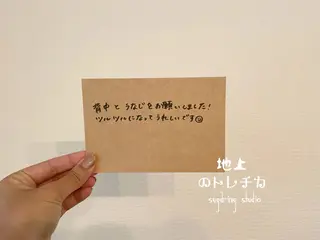 背中とうなじをお願いしました!
ツルツルになってうれしいです☺
地上
のトレチカ